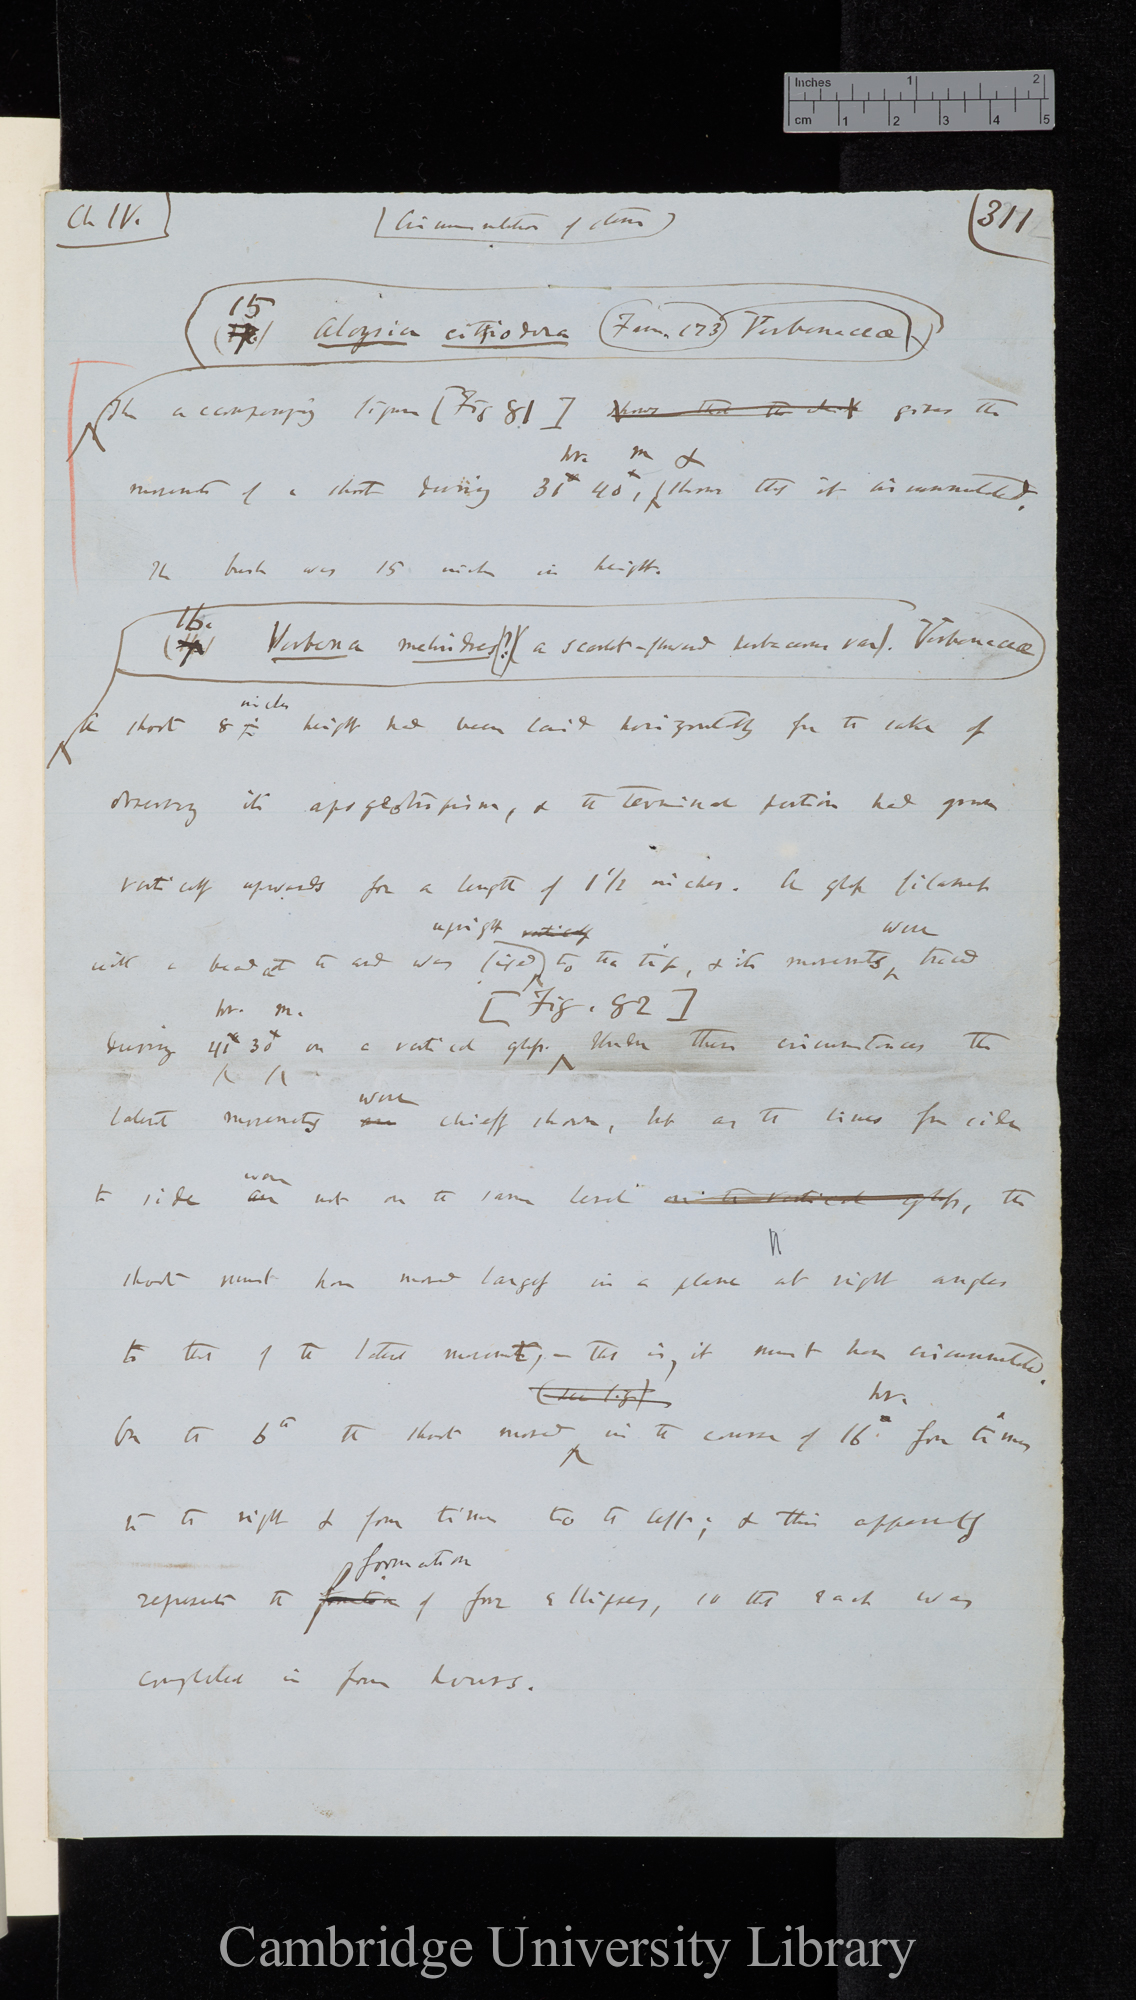 Inches 1 2
cm 1 2 3 4 5
Ch IV. (Circumnutation of stems) 311
15
Aloysia citriodora (Fam. 173) Verbenaceæ
The accompanying figure [Fig 81] shows that the shoot gives the
hr. m &
movements of a shoot during 31 40, shows that it circumnutated.
The bush was 15 inches in height.
16.
Verbena melindres (?) (a scarlet-flowered herbaceous var). Verbenaceæ
inches
A shoot 8 in height had been laid horizontally for the sake of
observing its apogeotropism, & the terminal portion had grown
vertically upwards for a length of 1 1/2 inches. A glass filament
upright vertically were
with a bead at the end was fixed to the tip, & its movements traced
hr. m. [Fig. 82]
during 41 30 on a vertical glass. Under these circumstances the
were
lateral movements are chiefly shown, but as the lines from side
were
to side are not on the same level on the vertical glass, the
shoot must have moved largely in a plane at right angles
to that of the lateral movement, — that is, it must have circumnutated.
(see fig) hr.
On the 6th the shoot moved in the course of 16 four times
to the right & four times to the left; & this apparently
formation
represents the formation of four ellipses, so that each was
completed in four hours.
Cambridge University Library